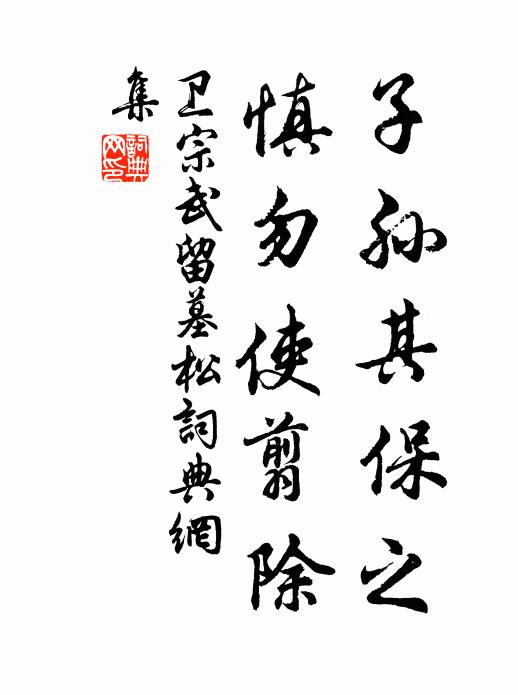 子孫其保之
慎勿使翦除
卫宗武留墓松詞典網
集
詞典
网印